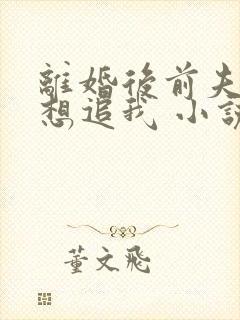 離婚後前夫
想追我 小說
董文飛